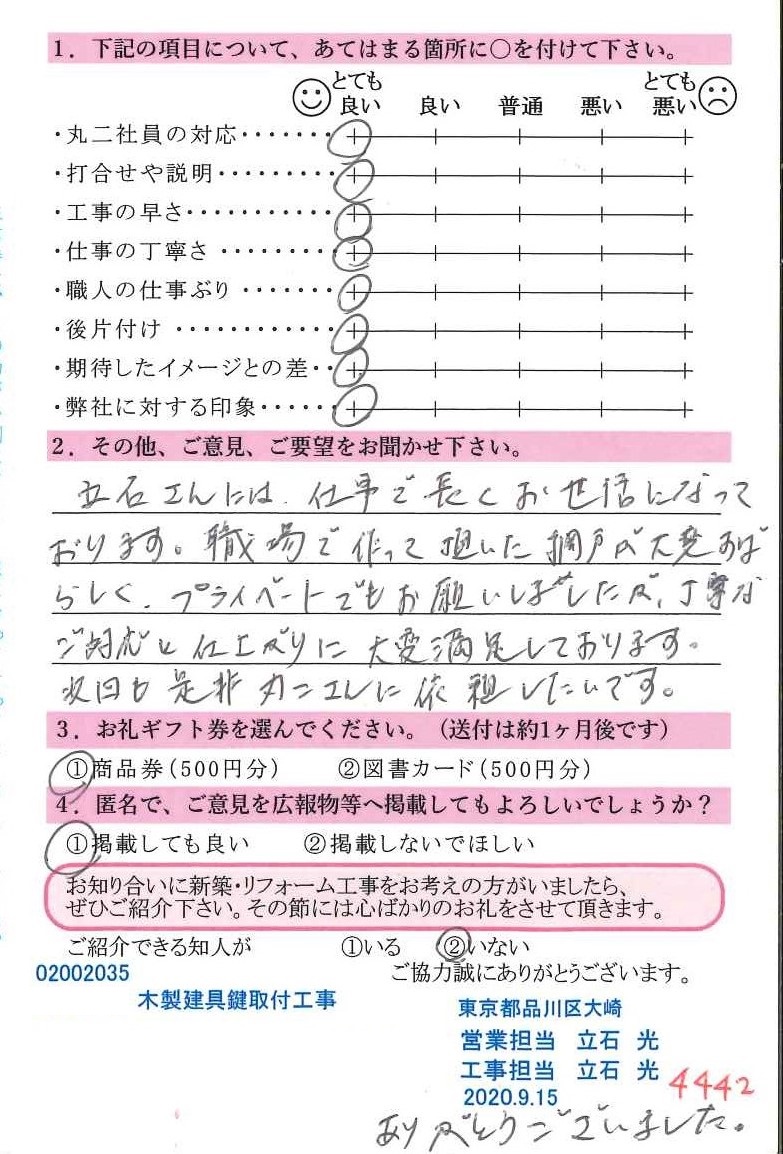 1．下記の項目について、あてはまる箇所に○を付けて下さい。
とても良い 良い 普通 悪い とても悪い
・丸二社員の対応・・・・・・・
・打合せや説明・・・・・・・・・
・工事の早さ・・・・・・・・・・・
・仕事の丁寧さ・・・・・・・・・
・職人の仕事ぶり・・・・・・・
・後片付け・・・・・・・・・・・・
・期待したイメージとの差・・
・弊社に対する印象・・・・・・
2．その他、ご意見、ご要望をお聞かせ下さい。
立石さんには、仕事で長くお世話になって
おります。職場で作って頂いた網戸が大変すば
らしく、プライベートでもお願いしましたが、丁寧な
ご対応と仕上がりに大変満足しております。
次回も是非丸二さんに依頼したいです。
3．お礼ギフト券を選んでください。（送付は約1ヶ月後です）
①商品券（500円分） ②図書カード（500円分）
4．匿名で、ご意見を広報物等へ掲載してもよろしいでしょうか？
①掲載しても良い ②掲載しないでほしい
お知り合いに新築・リフォーム工事をお考えの方がいましたら、
ぜひご紹介下さい。その節には心ばかりのお礼をさせて頂きます。
ご紹介できる知人が ①いる ②いない
ご協力誠にありがとうございます。
02002035
木製建具鍵取付工事
東京都品川区大崎
営業担当 立石 光
工事担当 立石 光
2020.9.15
4442
ありがとうございました。